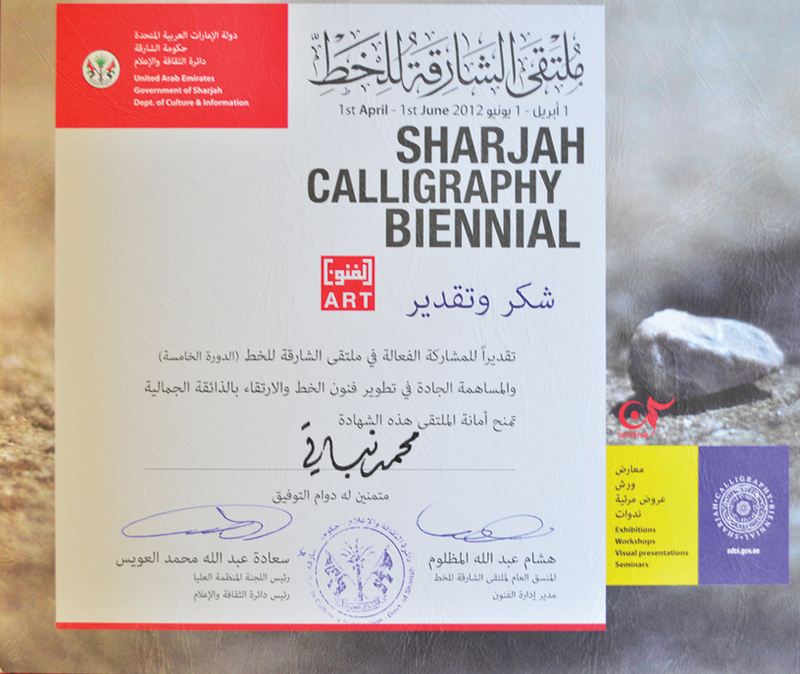 دولة الإمارات العربية المتحدة
حكومة الشارقة
دائرة الثقافة والإعلام
United Arab Emirates
Government of Sharjah
Dept. of Culture & Information
ملتقى الشارقة للخط
1st April - 1st June 2012 1 أبريل - 1 يونيو
SHARJAH
CALLIGRAPHY
BIENNIAL
الفنون
ART
شكر وتقدير
تقديراً للمشاركة الفعالة في ملتقى الشارقة للخط (الدورة الخامسة)
والمساهمة الجادة في تطوير فنون الخط والارتقاء بالذائقة الجمالية
تمنح أمانة الملتقى هذه الشهادة
محمد نباتي
متمنين له دوام التوفيق
هشام عبد الله المظلوم
المنسق العام لملتقى الشارقة للخط
مدير إدارة الفنون
سعادة عبد الله محمد العويس
رئيس اللجنة المنظمة العليا
رئيس دائرة الثقافة والإعلام
معارض
ورش
عروض مرئية
ندوات
Exhibitions
Workshops
Visual presentations
Seminars
CALLIGRAPHY BIENNIAL SHARJAH
sdci.gov.ae